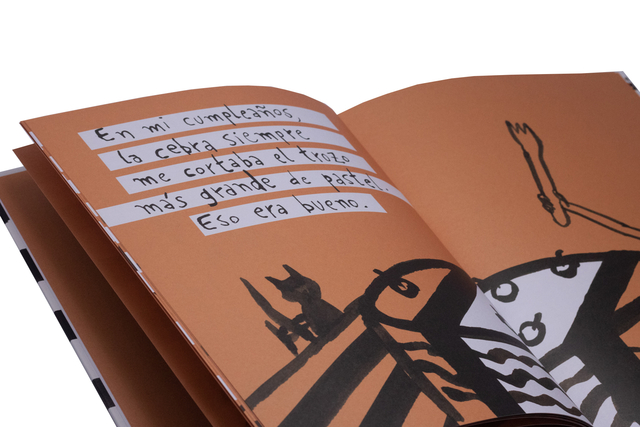 En mi cumpleaños,
la cebra siempre
me cortaba el trozo
más grande de pastel.
Eso era bueno.